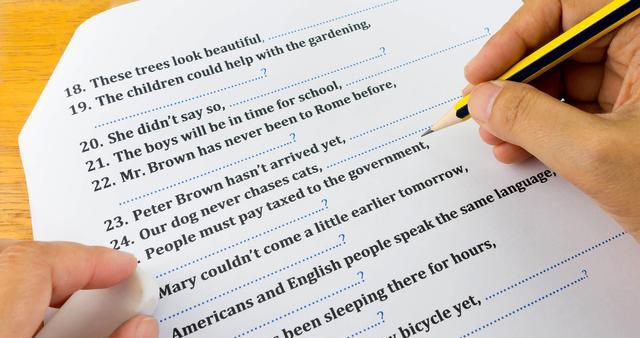 18. These trees look beautiful, ..............................?
19. The children could help with the gardening,
..............................?
20. She didn't say so, ..............................?
21. The boys will be in time for school, ..............................?
22. Mr. Brown has never been to Rome before,
..............................?
23. Peter Brown hasn't arrived yet, ..............................
24. Our dog never chases cats, ..............................
. People must pay taxed to the government,
..............................?
Mary couldn't come a little earlier tomorrow,
..............................?
Americans and English people speak the same language,
..............................?
been sleeping there for hours,
..............................?
bicycle yet, ..............................?